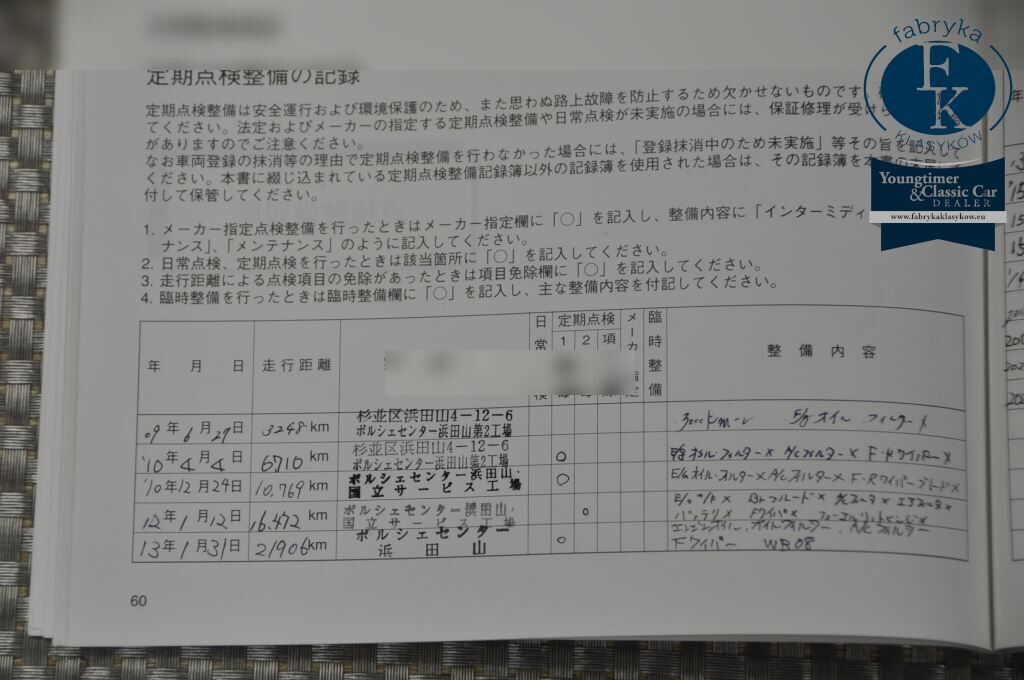 定期点検整備の記録
定期点検整備は安全運行および環境保護のため、また思わぬ路上故障を防止するため欠かせないものです。
てください。法定およびメーカーの指定する定期点検整備や日常点検が未実施の場合には、保証修理が受けら
がありますのでご注意ください。
なお車両登録の抹消等の理由で定期点検整備を行わなかった場合には、「登録抹消中のため未実施」等その旨を記入して
ください。本書に綴じ込まれている定期点検整備記録簿以外の記録簿を使用された場合は、その記録簿を本書の
付して保管してください。
1. メーカー指定点検整備を行ったときはメーカー指定欄に「○」を記入し、整備内容に「インターミディ
ナンス」、「メンテナンス」のように記入してください。
2. 日常点検、定期点検を行ったときは該当箇所に「○」を記入してください。
3. 走行距離による点検項目の免除があったときは項目免除欄に「○」を記入してください。
4. 臨時整備を行ったときは臨時整備欄に「○」を記入し、主な整備内容を付記してください。
年 月 日 走行距離 日常 検 定期点検 1 2 項 メーカー 指定 臨時整備 整備内容
杉並区浜田山4-12-6
09年6月27日 3248 km ポルシェセンター浜田山第2工場 オイル フィルター
杉並区浜田山4-12-6
'10年4月4日 6710 km ポルシェセンター浜田山第2工場 ○ フィルター× A/Cフィルター× F・Rワイパー×
ポルシェセンター浜田山・
'10年12月24日 10,769 km 国立サービス工場 ○ E/gオイル・フィルター× A/Cフィルター× F・Rワイパーブレード×
ポルシェセンター浜田山・
12年1月12日 16,472 km 国立サービス工場 ○ バッテリ× Fワイパ×
ポルシェセンター エンジンオイル、オイルフィルター、A/Cフィルター
13年1月31日 21906 km 浜田山 ○ Fワイパー WB08
60
fabryka
FK
KLASYKÓW
Youngtimer
& Classic Car
DEALER
www.fabrykaklasykow.eu